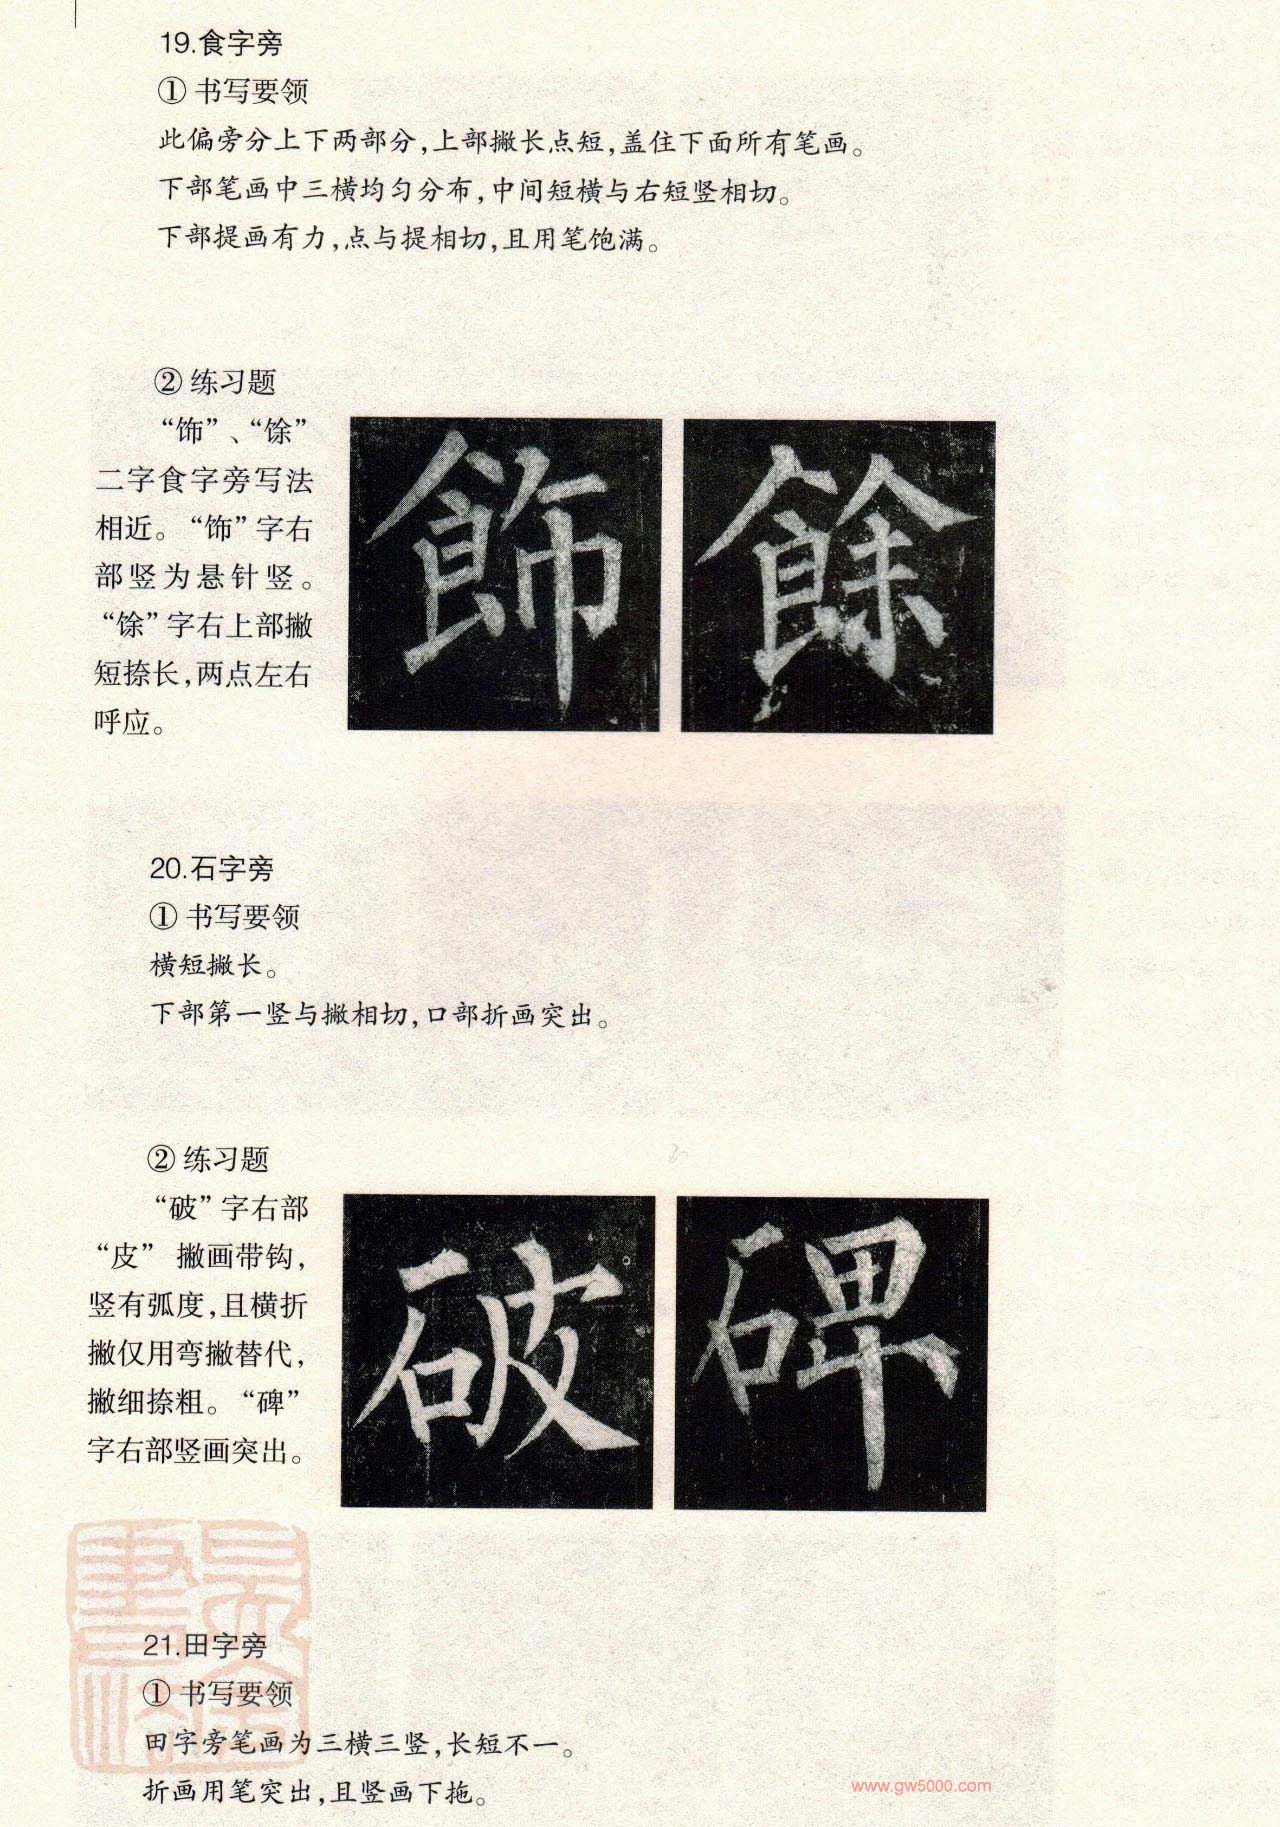 19.食字旁
① 书写要领
此偏旁分上下两部分,上部撇长点短,盖住下面所有笔画。
下部笔画中三横均匀分布,中间短横与右短竖相切。
下部提画有力,点与提相切,且用笔饱满。
② 练习题
“饰”、“馀”
二字食字旁写法
相近。“饰”字右
部竖为悬针竖。
“馀”字右上部撇
短捺长,两点左右
呼应。
飾
餘
20.石字旁
① 书写要领
横短撇长。
下部第一竖与撇相切,口部折画突出。
② 练习题
“破”字右部
“皮” 撇画带钩,
竖有弧度,且横折
撇仅用弯撇替代,
撇细捺粗。“碑”
字右部竖画突出。
破
碑
21.田字旁
① 书写要领
田字旁笔画为三横三竖,长短不一。
折画用笔突出,且竖画下拖。
www.gw5000.com